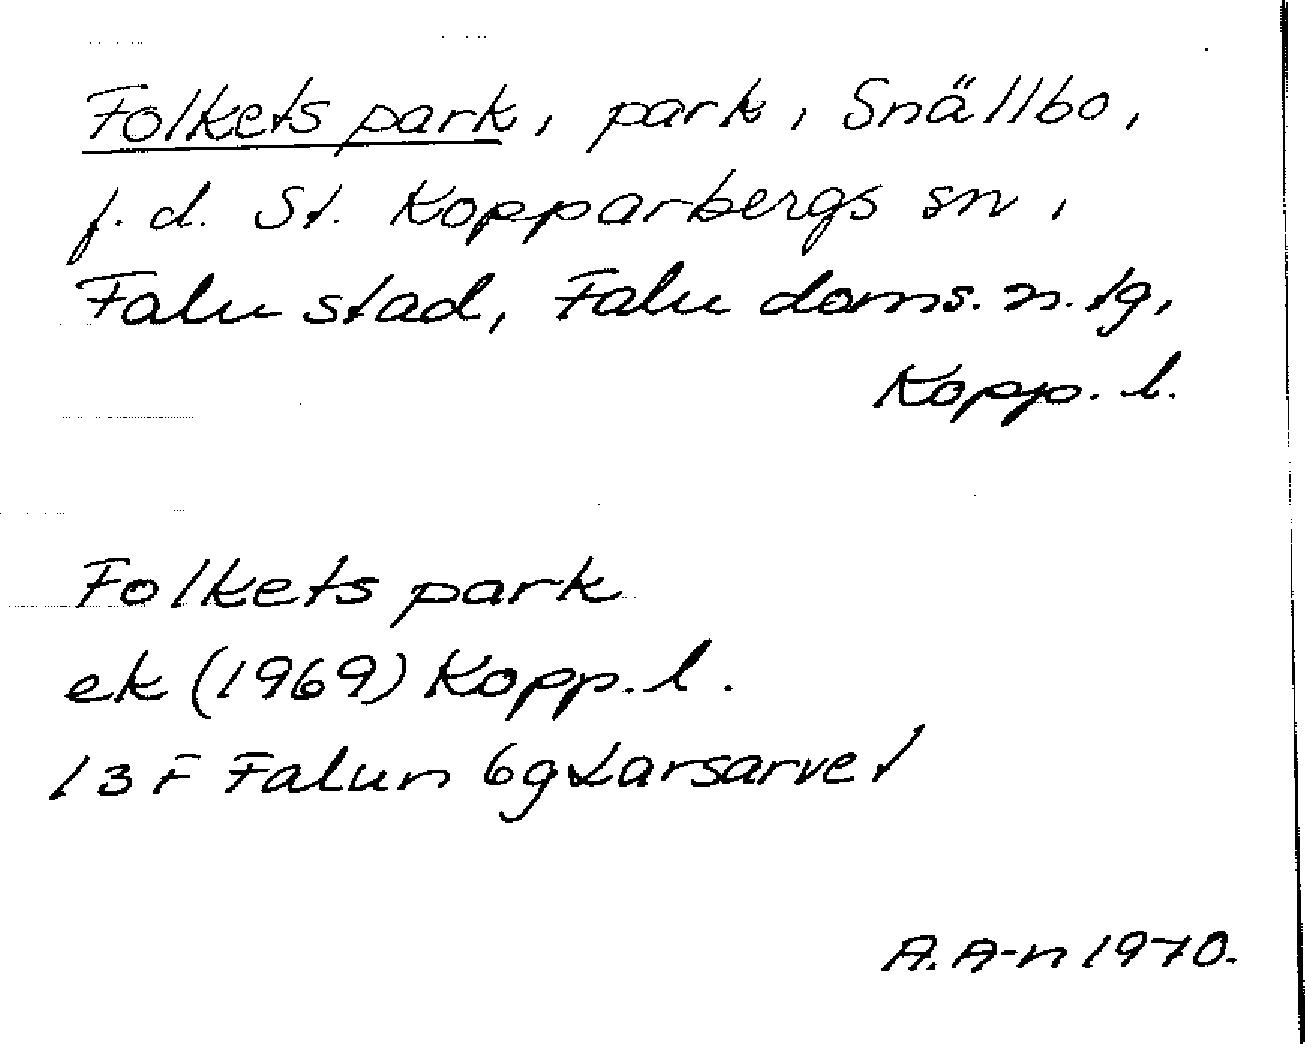 Folkets park, park, Snällbo,
f.d. St. Kopparbergs sn,
Falu stad, Falu doms.n.tg,
Kopp. l.
Folkets park
ek (1969) Kopp. l.
13 F Falun 6g Larsarvet
A. A-n 1970.